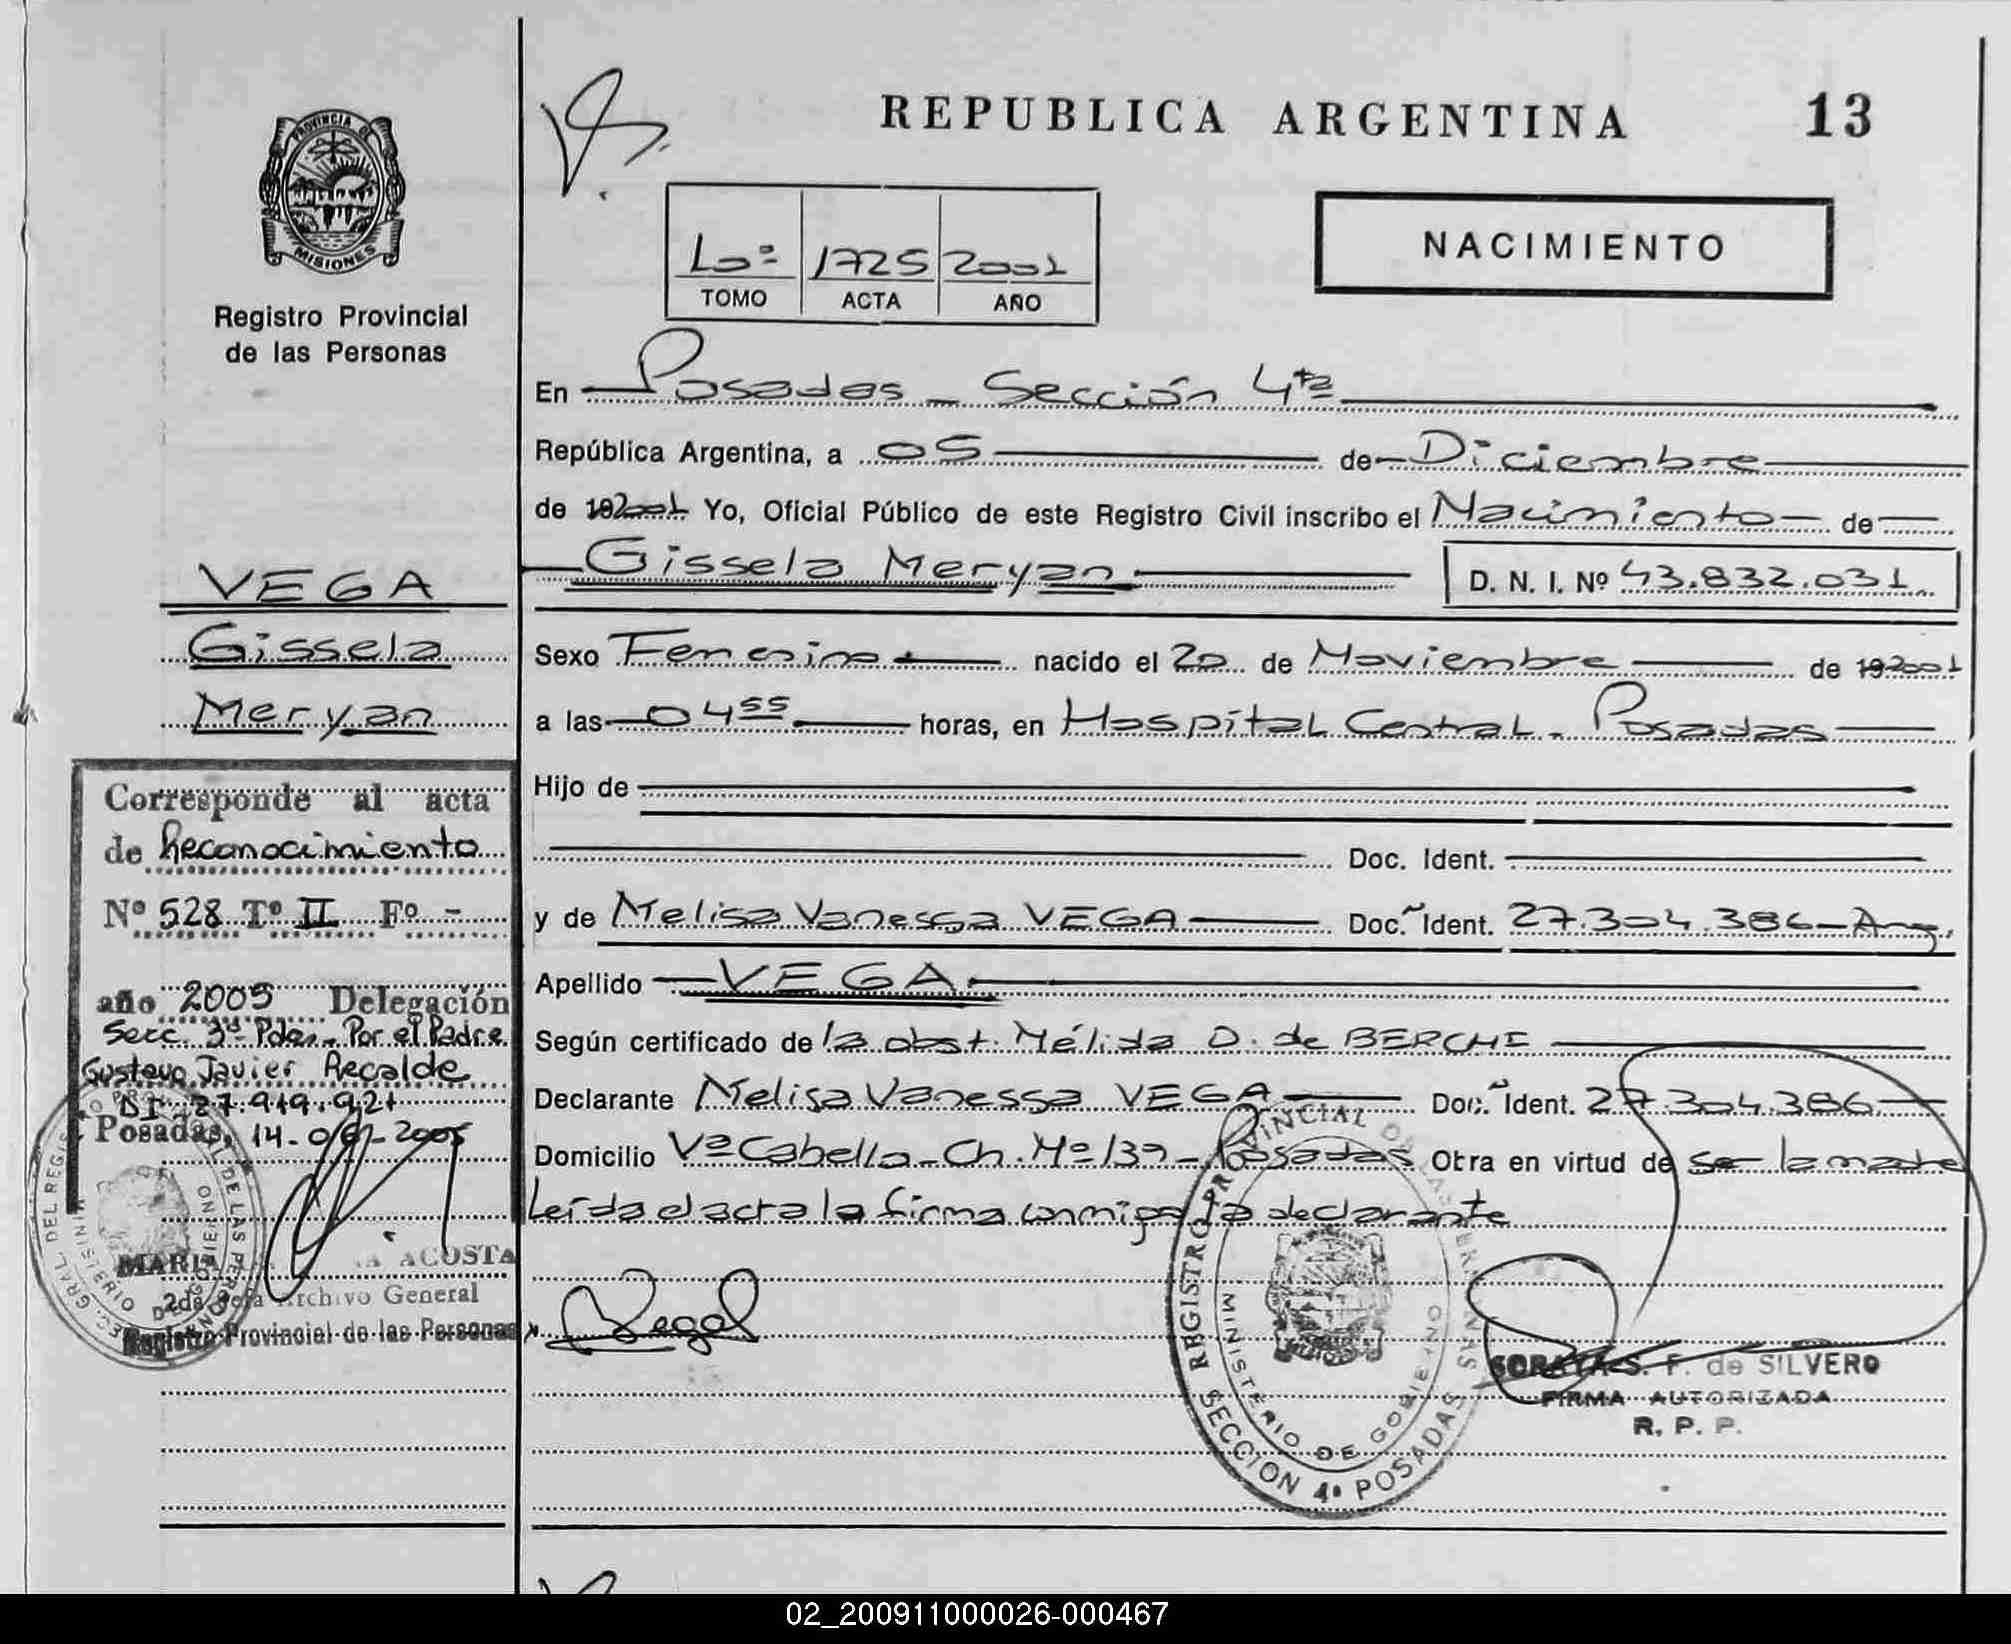 REPUBLICA ARGENTINA 13
PROVINCIA DE
MISIONES
Registro Provincial
de las Personas
1725 2001
TOMO ACTA AÑO
NACIMIENTO
En Posadas - Sección 4ta
República Argentina, a 05 de Diciembre
de 192001 Yo, Oficial Público de este Registro Civil inscribo el Nacimiento de
Gissela Meryan D. N. I. Nº 43.832.031
Sexo Femenino nacido el 20 de Noviembre de 192001
a las 04 55 horas, en Hospital Central - Posadas
Hijo de
Doc. Ident.
y de Melisa Vanessa VEGA Doc. Ident. 27.304.386 - Arg.
Apellido VEGA
Según certificado de la obst. Mélida D. de BERCHE
Declarante Melisa Vanessa VEGA Doc. Ident. 27.304.386
Domicilio Vª Cabello - Ch. Nº 139 - Posadas Obra en virtud de ser la madre
Leída el acta la firma conmigo la declarante
VEGA
Gissela
Meryan
Corresponde al acta
de Reconocimiento
Nº 528 Tº II Fº -
año 2005 Delegación
Secc. 3ª Pdas. Por el Padre
Gustavo Javier Recalde
DI 27.919.921
Posadas, 14-06-2005
MARIA ACOSTA
2da Jefa Archivo General
Registro Provincial de las Personas
REGISTRO PROVINCIAL DE LAS PERSONAS
MINISTERIO DE GOBIERNO
SECCION 4ª POSADAS
SORAYA S. F. de SILVERO
FIRMA AUTORIZADA
R. P. P.
02_200911000026-000467